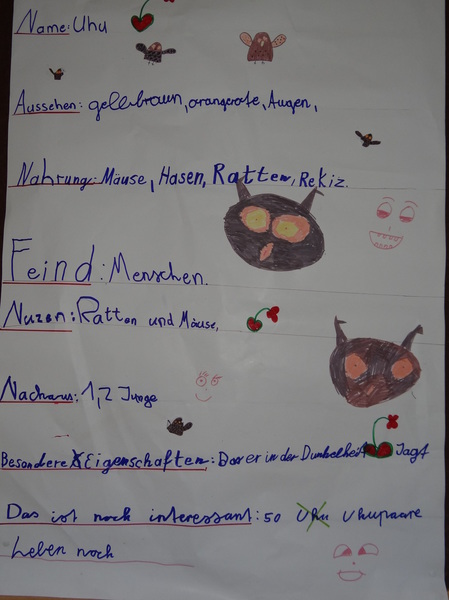 Name: Uhu
Aussehen: gelebraun, orangerote, Augen,
Nahrung: Mäuse, Hasen, Ratten, Rekiz.
Feind: Menschen.
Nuzen: Ratten und Mäuse,
Nachwus: 1,2 Junge
Besondere Eigenschaften: Das er in der Dunkelheit Jagt
Das ist noch interessant: 50 Uhu Uhupaare
Leben noch